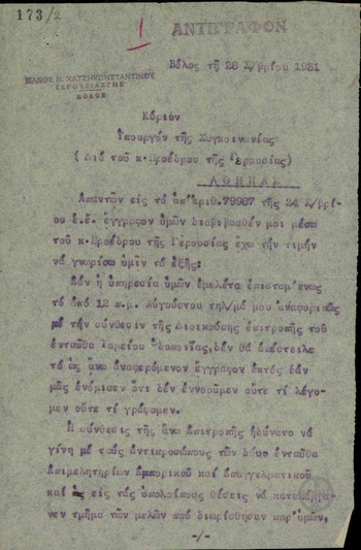 173/2
1
ΑΝΤΙΓΡΑΦΟΝ
Βόλος τῇ 28 Σ/βρίου 1931
ΠΑΝΟΣ Ν. ΧΑΤΖΗΚΩΝΣΤΑΝΤΙΝΟΥ
ΓΕΡΟΥΣΙΑΣΤΗΣ
ΒΟΛΟΣ
Κύριον
Ὑπουργόν τῆς Συγκοινωνίας
( Διά τοῦ κ.Προέδρου τῆς Γερουσίας)
ΑΘΗΝΑΣ
Ἀπαντῶν εἰς τό ὑπ'ἀριθ.79987 τῆς 24 Σ/βρί-
ου ἐ.ἔ. ἔγγραφον ὑμῶν διαβιβασθέν μοι μέσω
τοῦ κ.Προέδρου τῆς Γερουσίας ἔχω τήν τιμήν
νά γνωρίσω ὑμῖν τά ἑξῆς:
Ἐάν ἡ ὑπηρεσία ὑμῶν ἐμελέτα ἐπισταμένως
τό ἀπό 12 π.μ. Αὐγούστου τηλ/μά μου ἀναφορικῶς
μέ τήν σύνθεσιν τῆς Διοικούσης ἐπιτροπῆς τοῦ
ἐνταῦθα Ταμείου Ὁδοποιΐας, δέν θά ἀπέστειλε
τό ὡς ἄνω ἀναφερόμενον ἔγγραφον ἐκτός ἐάν
μᾶς ἐνόμισεν ὅτι δέν ἐννοοῦμεν οὔτε τί λέγο-
μεν οὔτε τί γράφομεν.
Ἡ σύνθεσις τῆς ἄνω ἐπιτροπῆς ἠδύνατο νά
γίνῃ μέ τούς ἀντιπροσώπους τῶν δύο ἐνταῦθα
Ἐπιμελητηρίων Ἐμπορικοῦ καί Ἐπαγγελματικοῦ
καί ὡς εἰς τάς ὑπολοίπους θέσεις νά
νεν τμῆμα τῶν μελῶν πού διωρίσθησαν παρ'ὑμῶν.
-/-